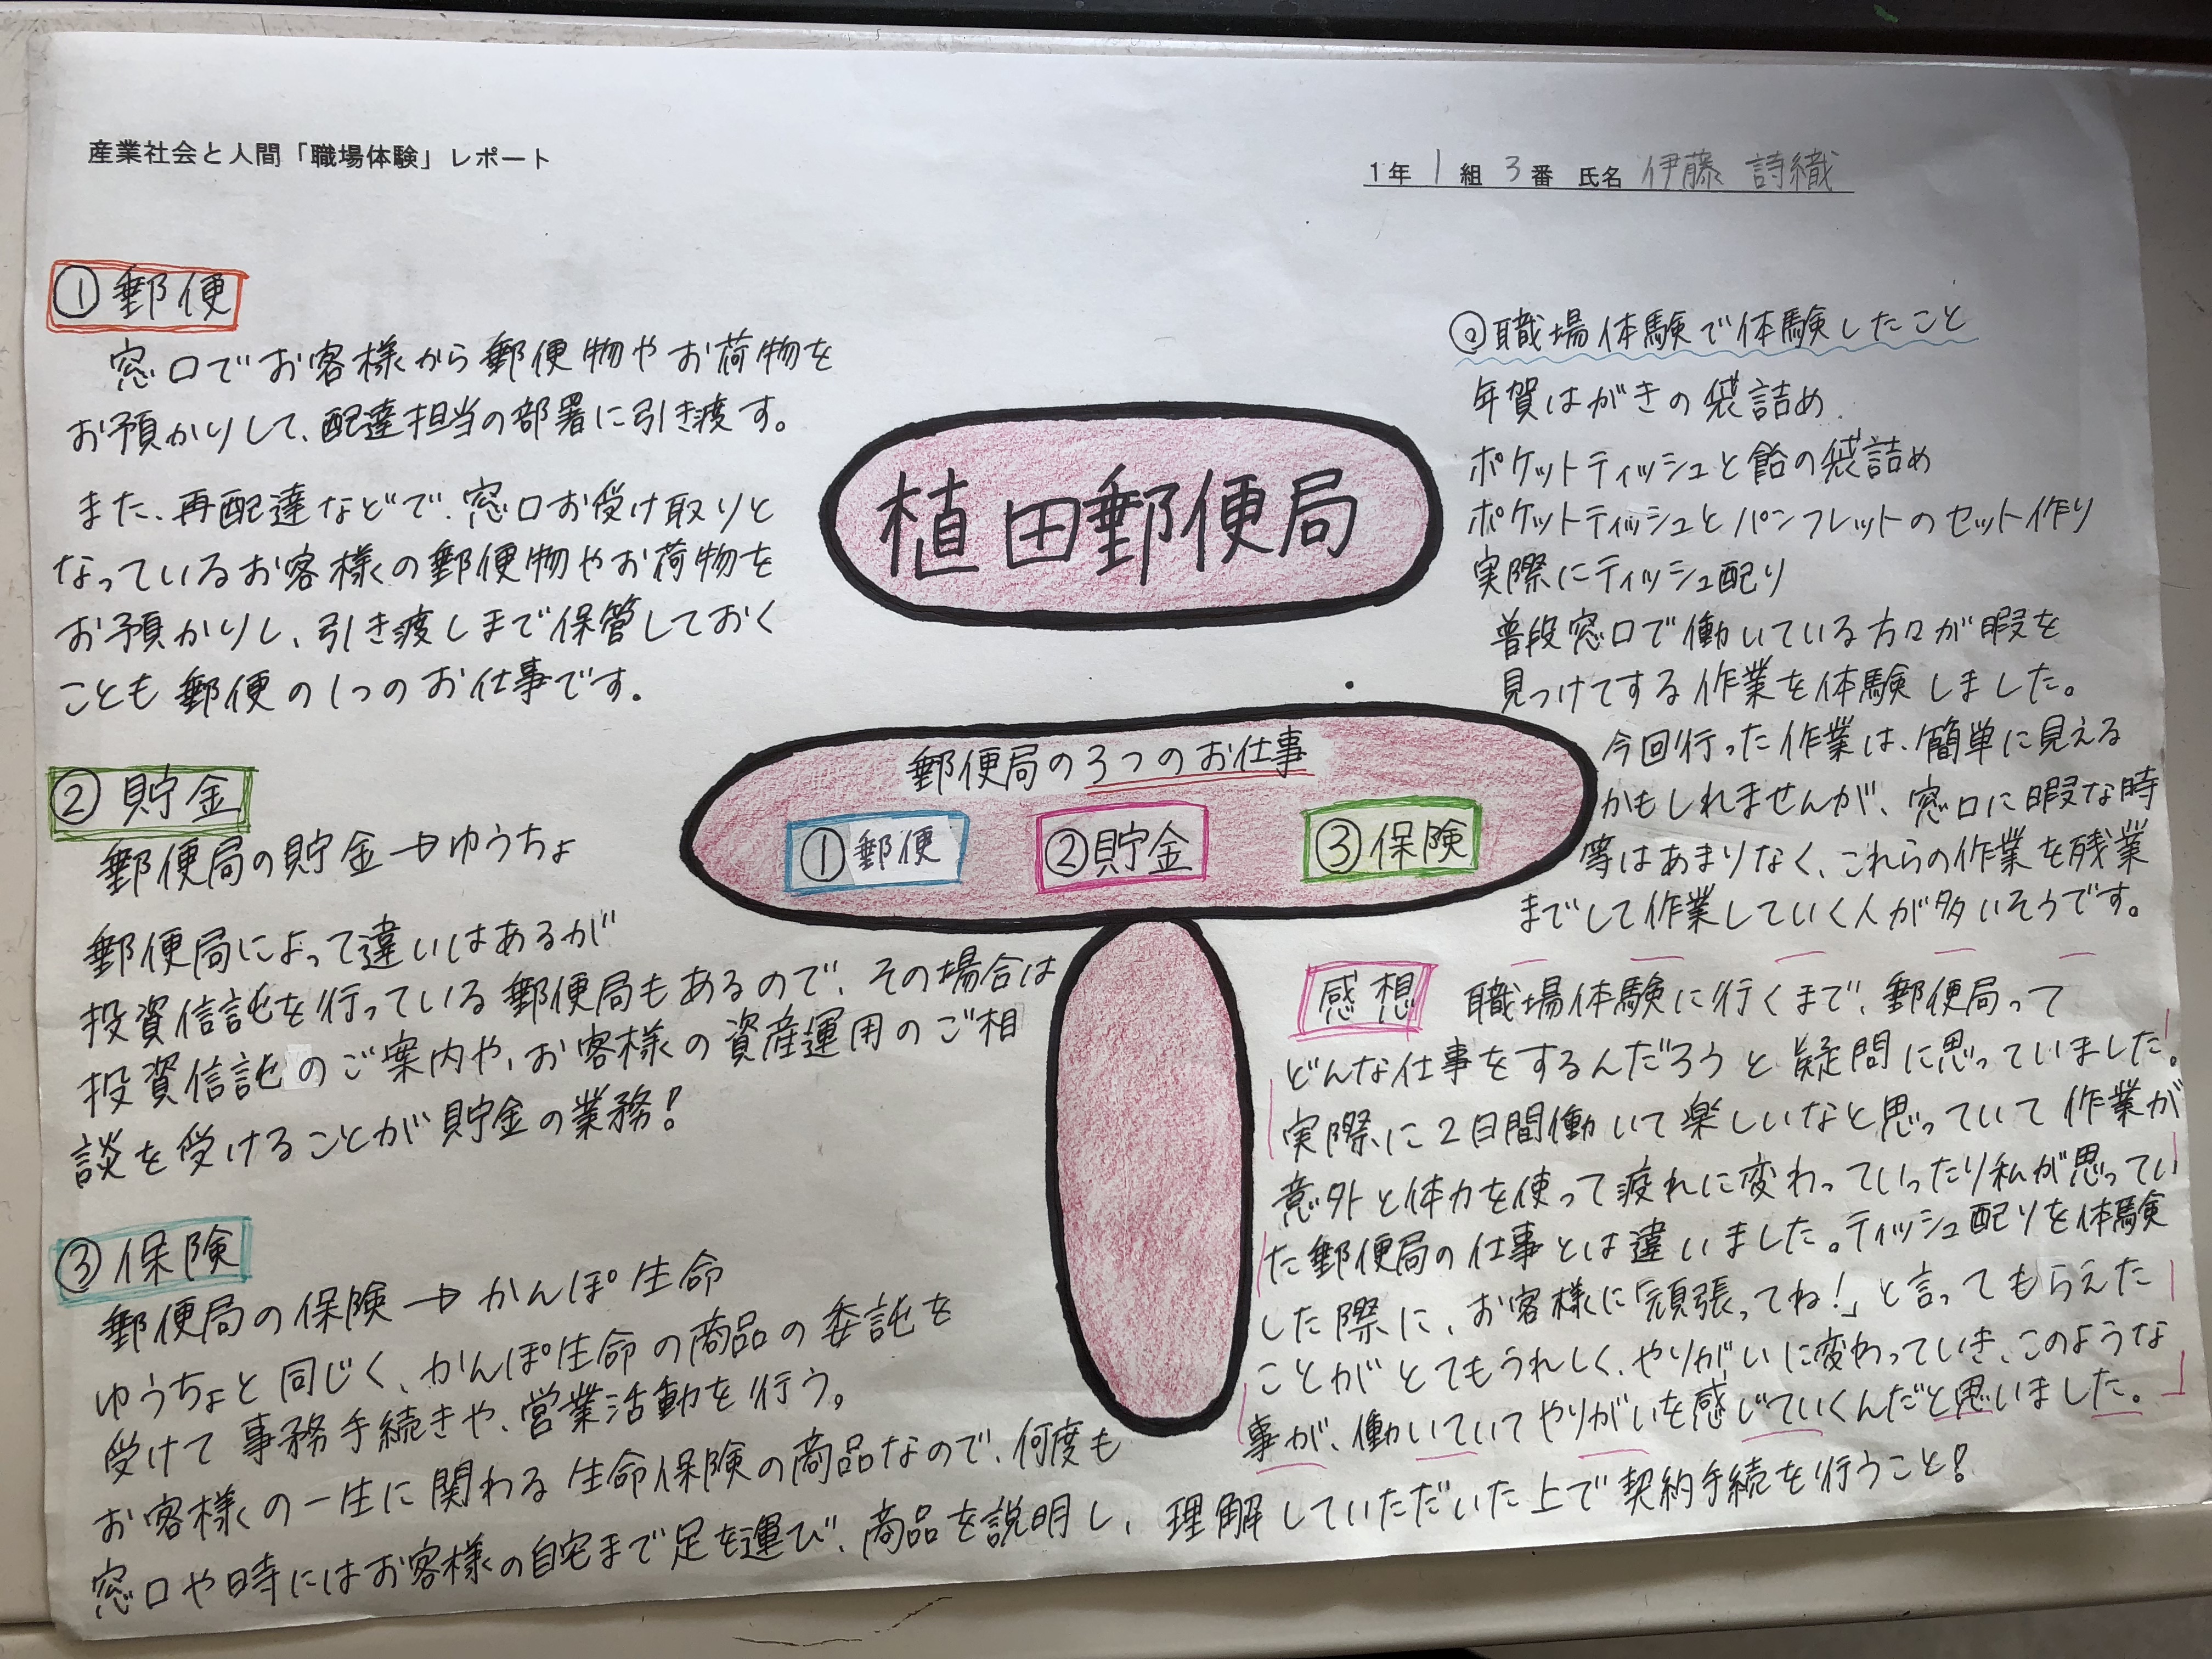 産業社会と人間「職場体験」レポート
1年 1 組 3 番 氏名 伊藤 詩織
① 郵便
窓口でお客様から郵便物やお荷物を
お預かりして、配達担当の部署に引き渡す。
また、再配達などで、窓口お受け取りと
なっているお客様の郵便物やお荷物を
お預かりし、引き渡しまで保管しておく
ことも郵便の1つのお仕事です。
② 貯金
郵便局の貯金→ゆうちょ
郵便局によって違いはあるが
投資信託を行っている郵便局もあるので、その場合は
投資信託のご案内や、お客様の資産運用のご相
談を受けることが貯金の業務!
③ 保険
郵便局の保険→かんぽ生命
ゆうちょと同じく、かんぽ生命の商品の委託を
受けて事務手続きや、営業活動を行う。
お客様の一生に関わる生命保険の商品なので、何度も
窓口や時にはお客様の自宅まで足を運び、商品を説明し、理解していただいた上で契約手続を行うこと!
植田郵便局
郵便局の3つのお仕事
①郵便 ②貯金 ③保険
◎職場体験で体験したこと
年賀はがきの袋詰め
ポケットティッシュと飴の袋詰め
ポケットティッシュとパンフレットのセット作り
実際にティッシュ配り
普段窓口で働いている方々が暇を
見つけてする作業を体験しました。
今回行った作業は、簡単に見える
かもしれませんが、窓口に暇な時
等はあまりなく、これらの作業を残業
までして作業していく人が多いそうです。
感想 職場体験に行くまで、郵便局って
どんな仕事をするんだろうと疑問に思っていました。
実際に2日間働いて楽しいなと思っていて作業が
意外と体力を使って疲れに変わっていったり私が思ってい
た郵便局の仕事とは違いました。ティッシュ配りを体験
した際に、お客様に「頑張ってね!」と言ってもらえた
ことがとてもうれしく、やりがいに変わっていき、このような
事が、働いていてやりがいを感じていくんだと思いました。